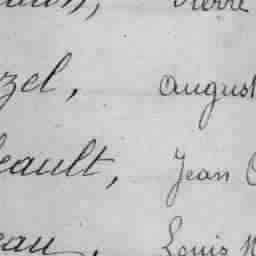 Pierre
zel, August
eault, Jean
eau, Louis